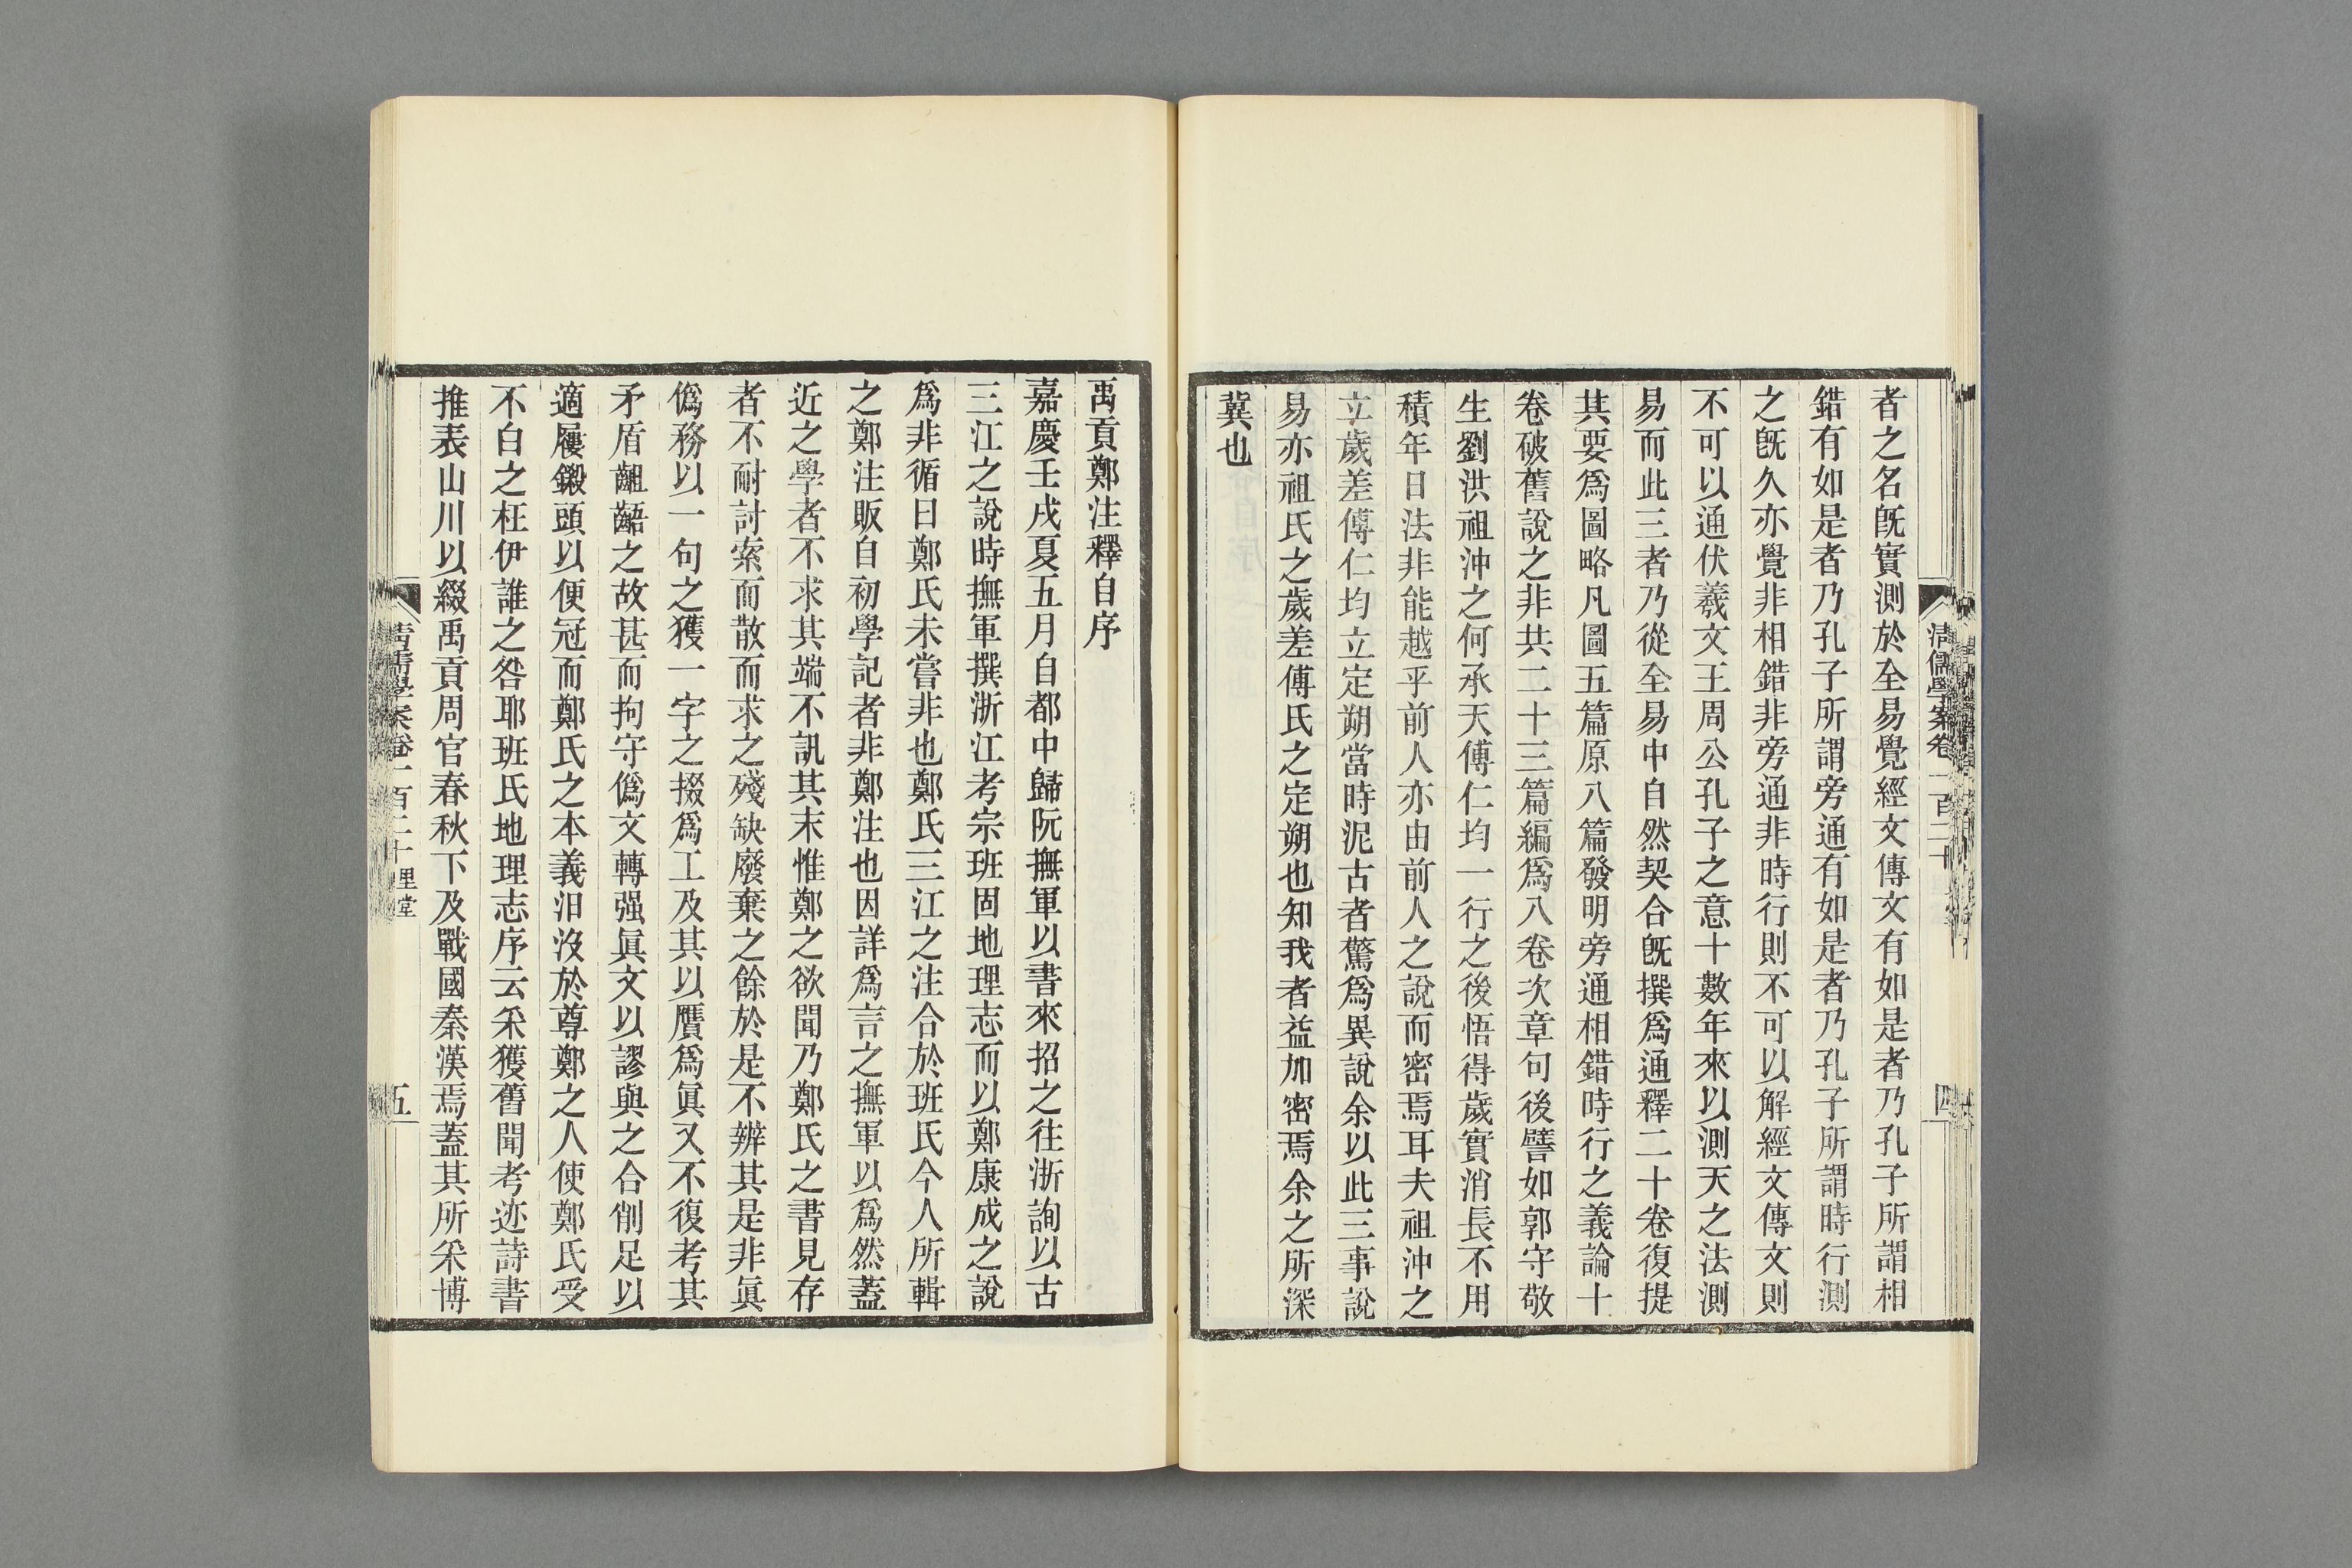 清儒學案卷一百二十
四
者之名旣實測於全易覺經文傳文有如是者乃孔子所謂相
錯有如是者乃孔子所謂旁通有如是者乃孔子所謂時行測
之旣久亦覺非相錯非旁通非時行則不可以解經文傳文則
不可以通伏羲文王周公孔子之意十數年來以測天之法測
易而此三者乃從全易中自然契合旣撰爲通釋二十卷復提
其要爲圖略凡圖五篇原八篇發明旁通相錯時行之義論十
卷破舊說之非共二十三篇編爲八卷次章句後譬如郭守敬
生劉洪祖沖之何承天傅仁均一行之後悟得歲實消長不用
積年日法非能越乎前人亦由前人之說而密焉耳夫祖沖之
立歲差傅仁均立定朔當時泥古者驚爲異說余以此三事說
易亦祖氏之歲差傅氏之定朔也知我者益加密焉余之所深
冀也
禹貢鄭注釋自序
嘉慶壬戌夏五月自都中歸阮撫軍以書來招之往浙詢以古
三江之說時撫軍撰浙江考宗班固地理志而以鄭康成之說
爲非循曰鄭氏未嘗非也鄭氏三江之注合於班氏今人所輯
之鄭注販自初學記者非鄭注也因詳爲言之撫軍以爲然蓋
近之學者不求其端不訊其末惟鄭之欲聞乃鄭氏之書見存
者不耐討索而散而求之殘缺廢棄之餘於是不辨其是非眞
僞務以一句之獲一字之掇爲工及其以贗爲眞又不復考其
矛盾齟齬之故甚而拘守僞文轉强眞文以謬與之合削足以
適屨鑿頭以便冠而鄭氏之本義汨沒於尊鄭之人使鄭氏受
不白之枉伊誰之咎耶班氏地理志序云采獲舊聞考迹詩書
推表山川以綴禹貢周官春秋下及戰國秦漢焉蓋其所采博
清儒學案卷一百二十 里堂
五